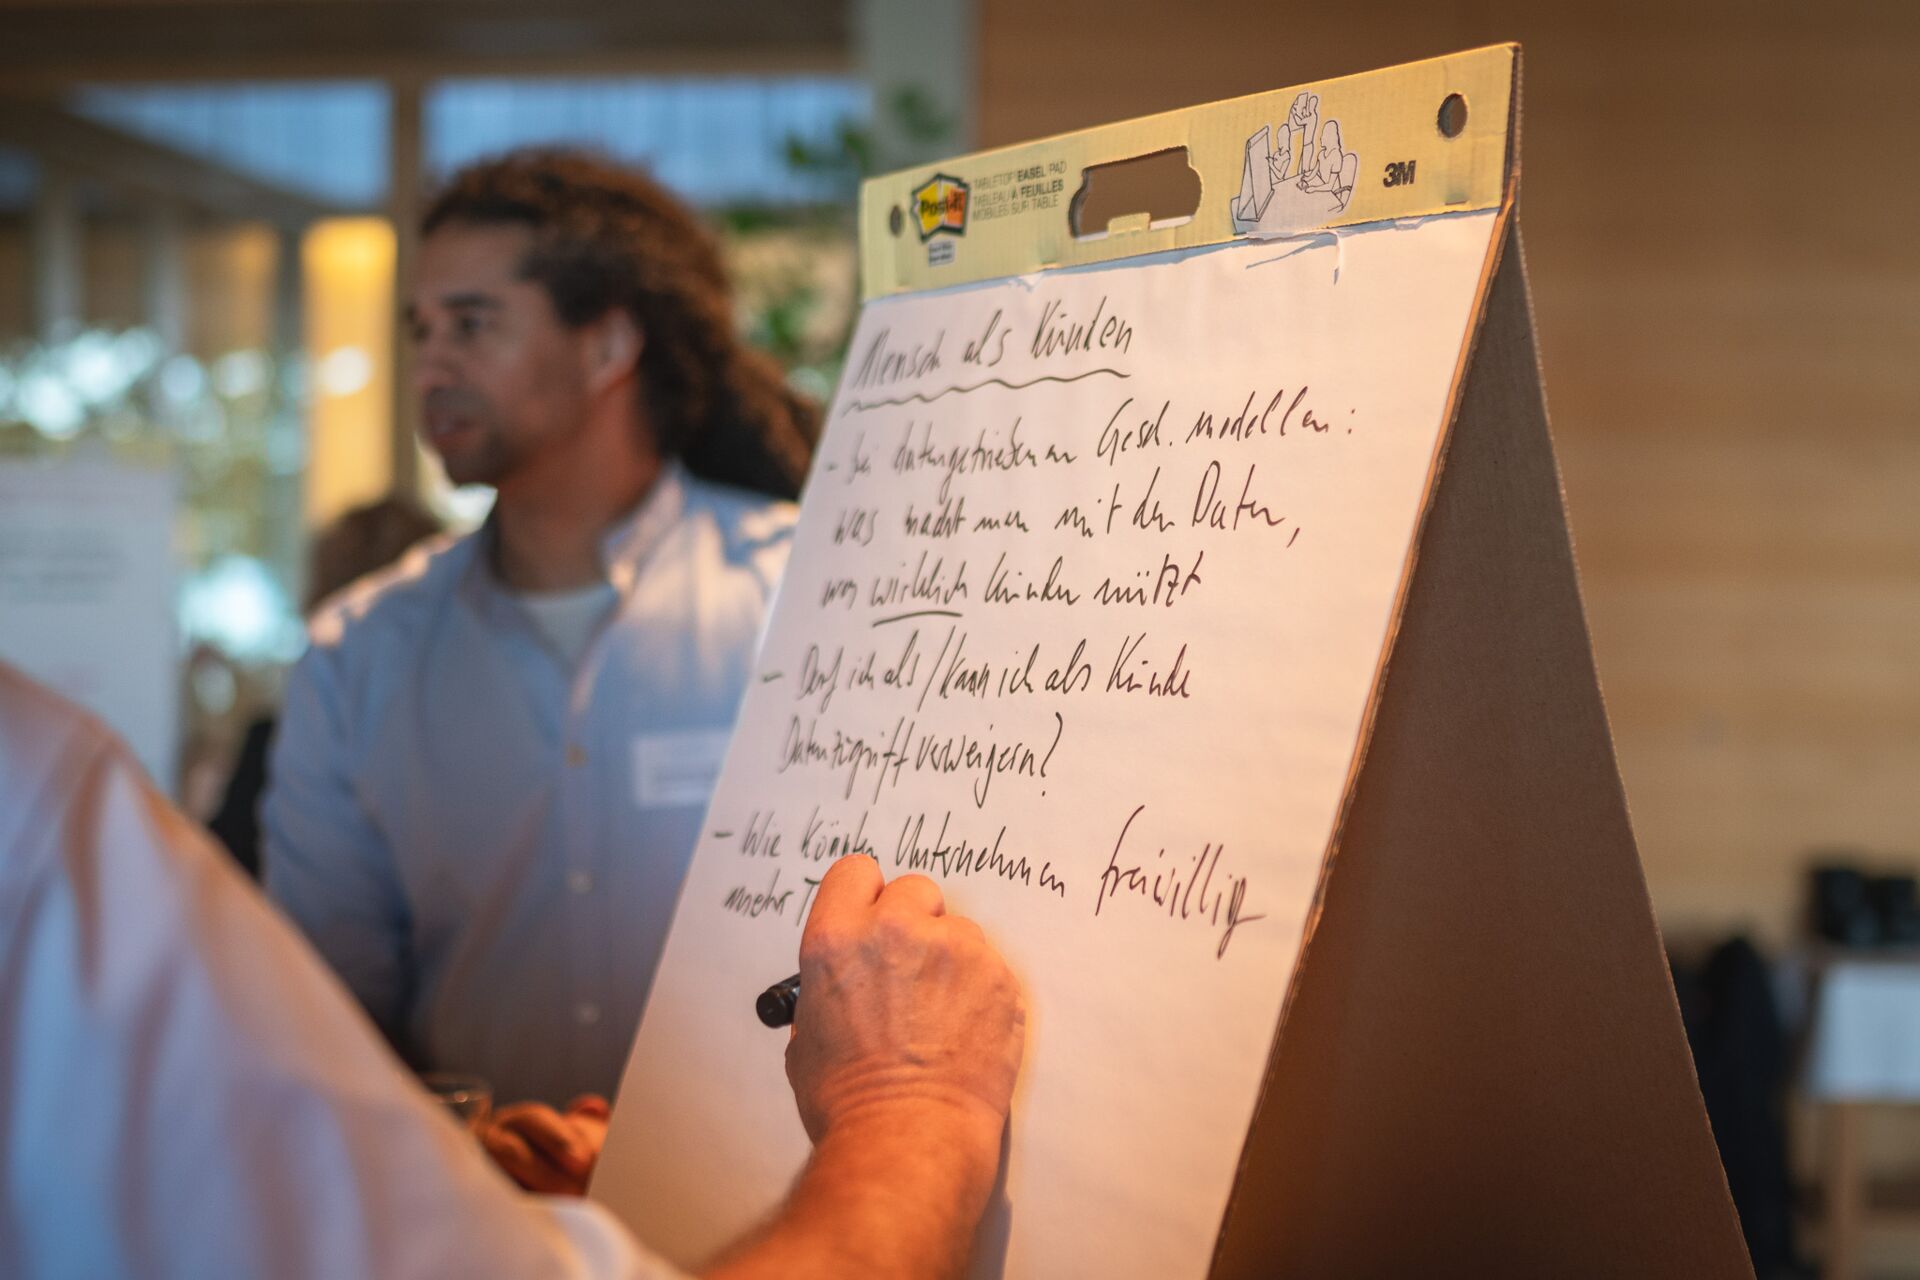 Post-it
TABLETOP EASEL PAD
TABLEAU À FEUILLES
MOBILES SUR TABLE
3M
Mensch als Kunden
- bei datengetriebenen Gesch. modellen:
was macht man mit den Daten,
was wirklich Kunden nützt
- Darf ich als / kann ich als Kunde
Datenzugriff verweigern?
- Wie könnten Unternehmen freiwillig
mehr T